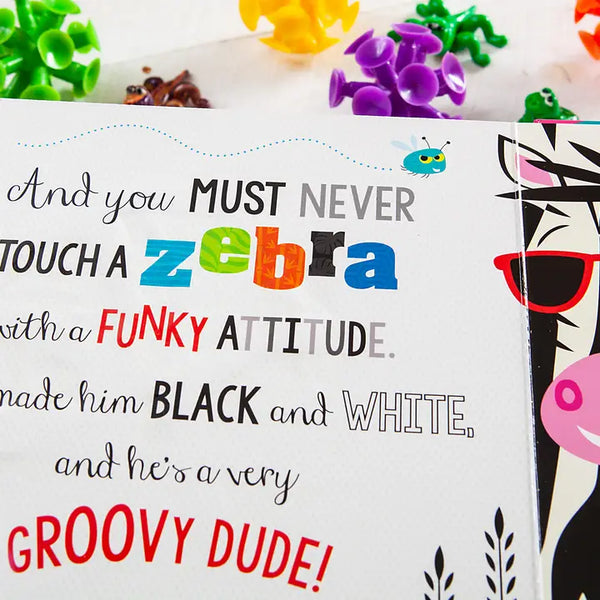 And you MUST NEVER
TOUCH A zebra
with a FUNKY ATTITUDE.
made him BLACK and WHITE,
and he's a very
GROOVY DUDE!